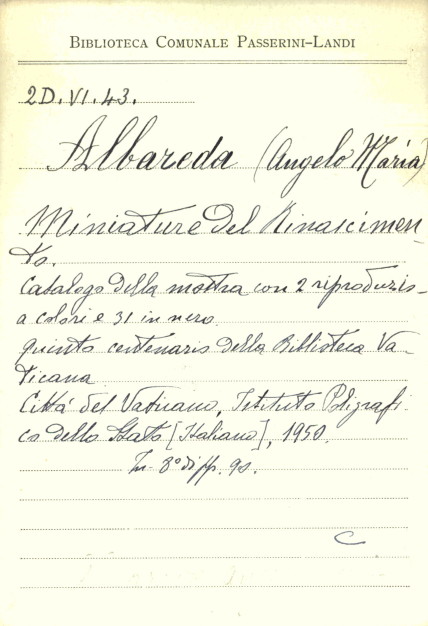 BIBLIOTECA COMUNALE PASSERINI-LANDI
2D.VI.43.
Albareda (Angelo Maria)
Miniature del Rinascimen-
to.
Catalogo della mostra con 2 riproduzio-
a colori e 31 in nero
quinto centenario della Biblioteca Va-
ticana
Città del Vaticano, Istituto Poligrafi
co dello Stato [Italiano], 1950.
In-8° di pp. 90.
C